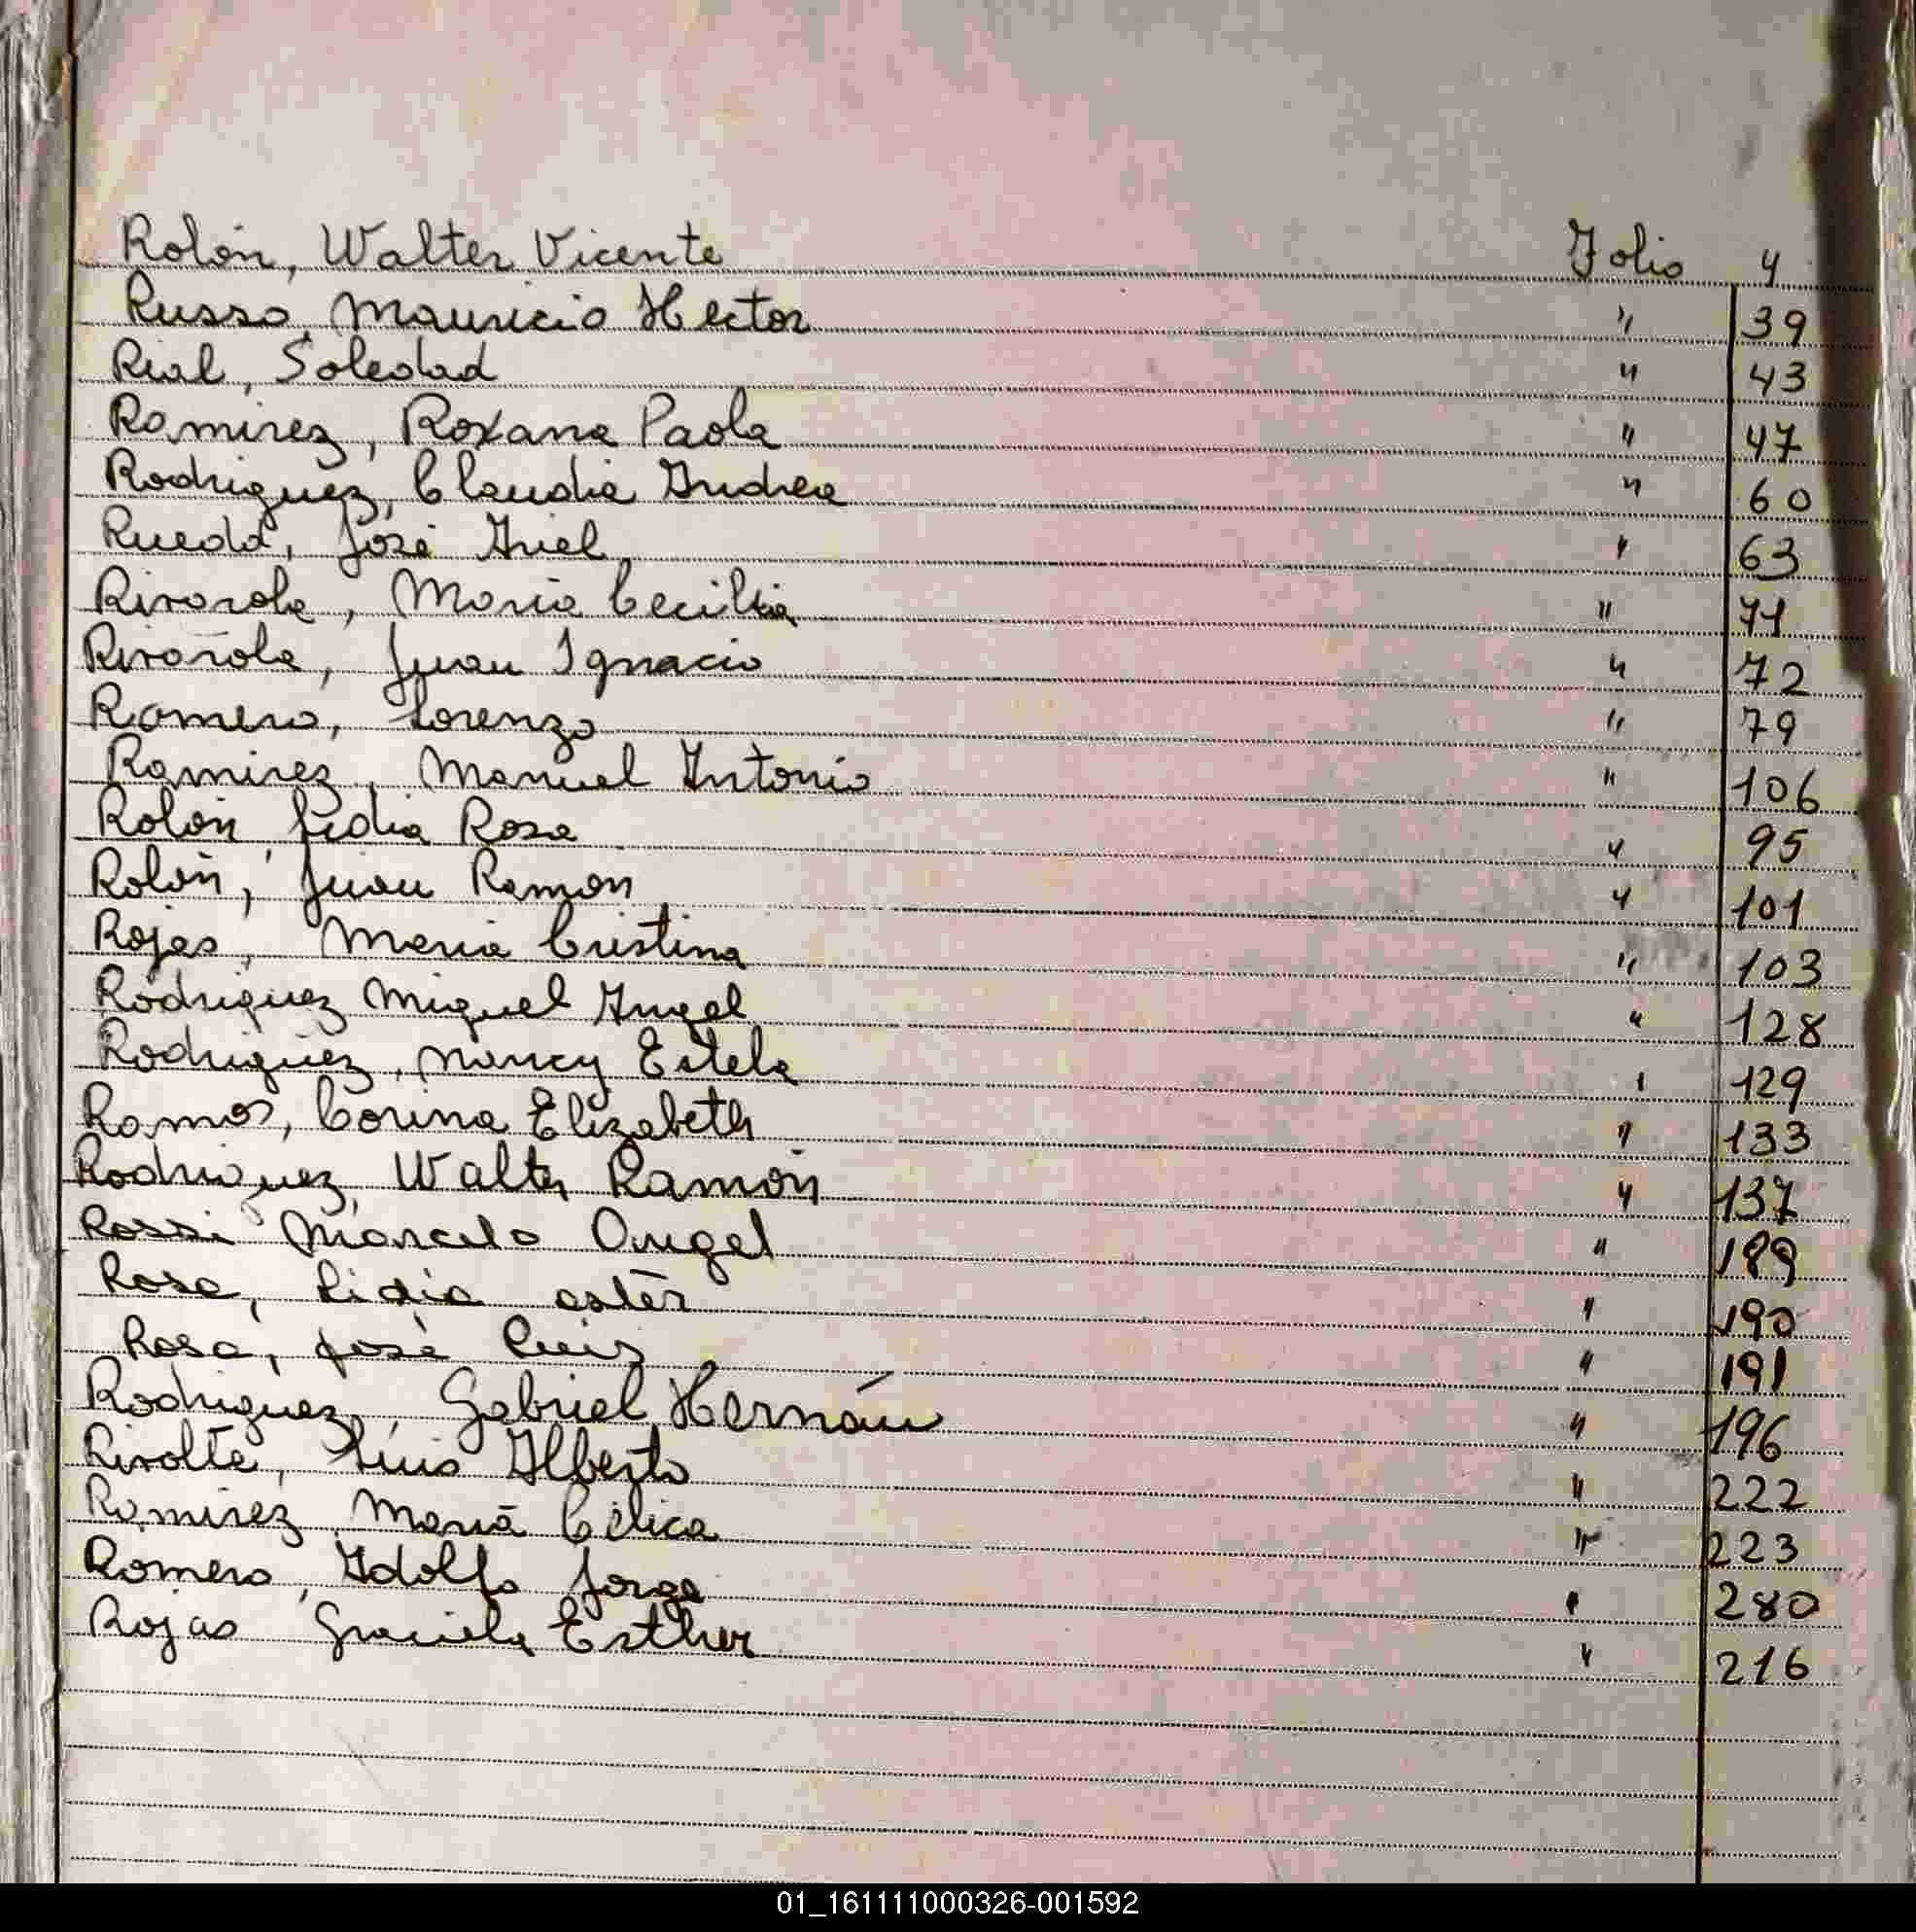 Rolón, Walter Vicente Folio 4
Russo, Mauricio Hector " 39
Rial, Soledad " 43
Ramirez, Roxana Paola " 47
Rodriguez, Claudia Andrea " 60
Rueda, José Ariel " 63
Rivarola, Maria Cecilia " 71
Rivarola, Juan Ignacio " 72
Romero, Lorenzo " 79
Ramirez, Manuel Antonio " 106
Rolón, Lidia Rosa " 95
Rolón, Juan Ramon " 101
Rojas, Maria Cristina " 103
Rodriguez Miguel Angel " 128
Rodriguez, Nancy Estela " 129
Ramos, Corina Elizabeth " 133
Rodriguez, Walter Ramón " 137
Rossi Marcelo Angel " 189
Rosa, Lidia ester " 190
Rosa, José Luis " 191
Rodriguez, Gabriel Hernán " 196
Rivolta, Luis Alberto " 222
Ramirez, Maria Célica " 223
Romero, Adolfo Jorge " 280
Rojas Graciela Esther " 216
01_161111000326-001592